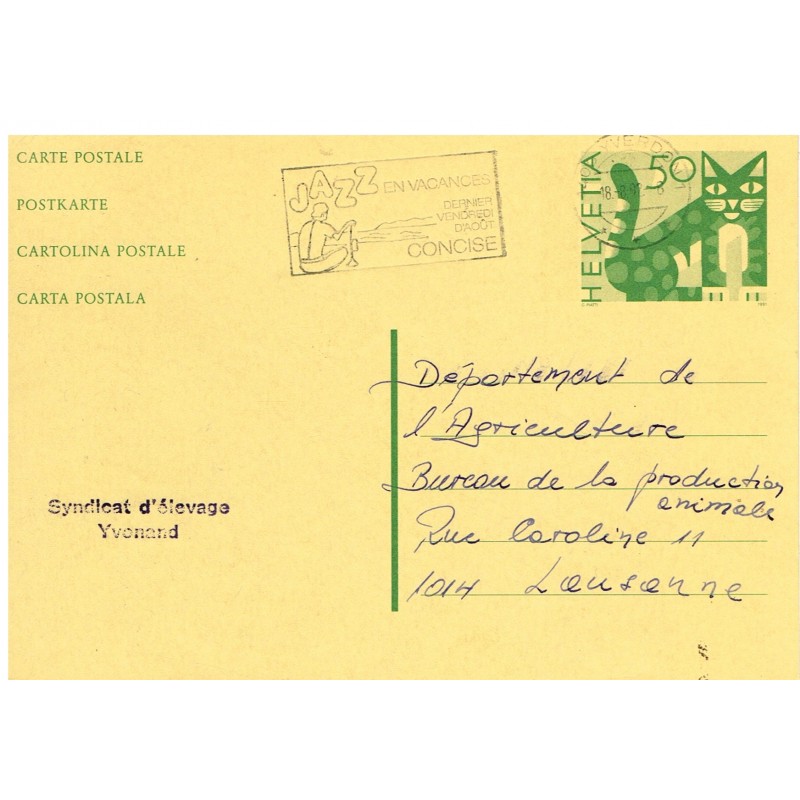 CARTE POSTALE
POSTKARTE
CARTOLINA POSTALE
CARTA POSTALA
JAZZ EN VACANCES
DERNIER
VENDREDI
D'AOÛT
CONCISE
YVERDON 1
50
HELVETIA
1991
Département de
l'Agriculture
Bureau de la production
animale
Rue Caroline 11
1014 Lausanne
Syndicat d'élevage
Yvonand